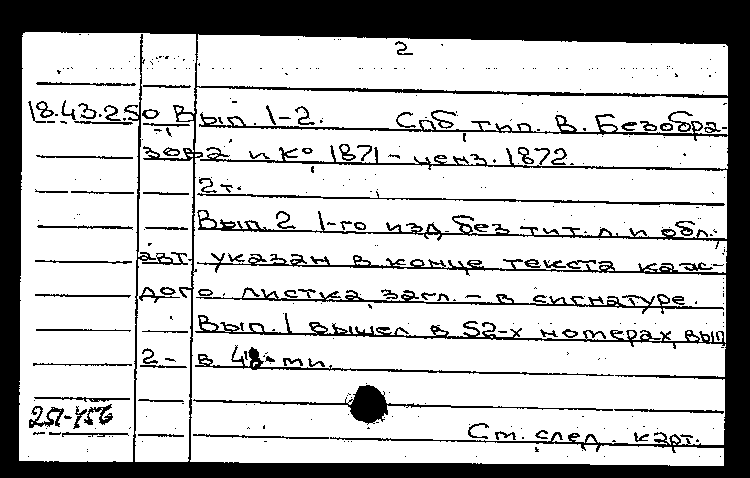 2
18.43.250 Вып. 1-2. Спб, тип. В. Безобра-
зова и К° 1871 - ценз. 1872.
2 т.
Вып. 2 1-го изд. без тит. л. и обл.,
авт. указан в конце текста каж-
дого листка, загл. - в сигнатуре.
Вып. 1 вышел в 52-х номерах, вып.
2 - в 48-ми.
251-456
См. след. карт.